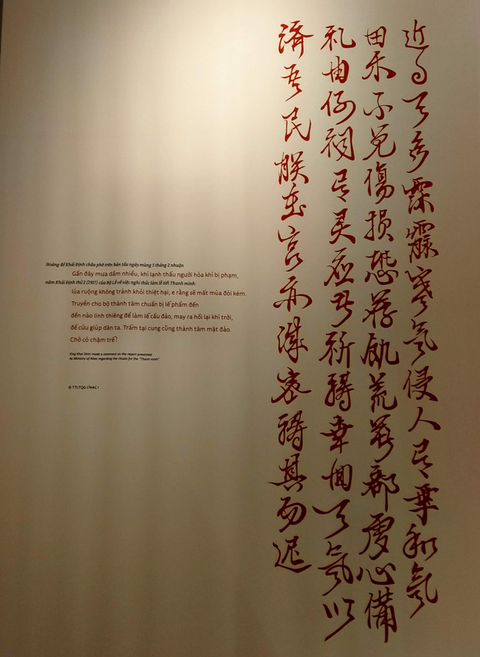 近日天多霖霢寒气侵人有乖和氣
田禾不免傷損恐荐飢荒著部虔心備
礼由何祠有灵应者祈禱幸回天氣以
濟吾民朕在宮亦誠密禱其勿遲
Hoàng đế Khải Định châu phê trên bản tấu ngày mùng 1 tháng 2 nhuận
Gần đây mưa dầm nhiều, khí lạnh thấu người hòa khí bị phạm,
năm Khải Định thứ 2 (1917) của Bộ Lễ về việc nghi thức làm lễ tiết Thanh minh:
lúa ruộng không tránh khỏi thiệt hại, e rằng sẽ mất mùa đói kém.
Truyền cho bộ thành tâm chuẩn bị lễ phẩm đến
đền nào linh thiêng để làm lễ cầu đảo, may ra hồi lại khí trời,
để cứu giúp dân ta. Trẫm tại cung cũng thành tâm mật đảo.
Chớ có chậm trễ.
King Khai Dinh made a comment on the report presented
by Ministry of Rites regarding the rituals for the "Thanh minh"
© TTLTQG I/NAC I